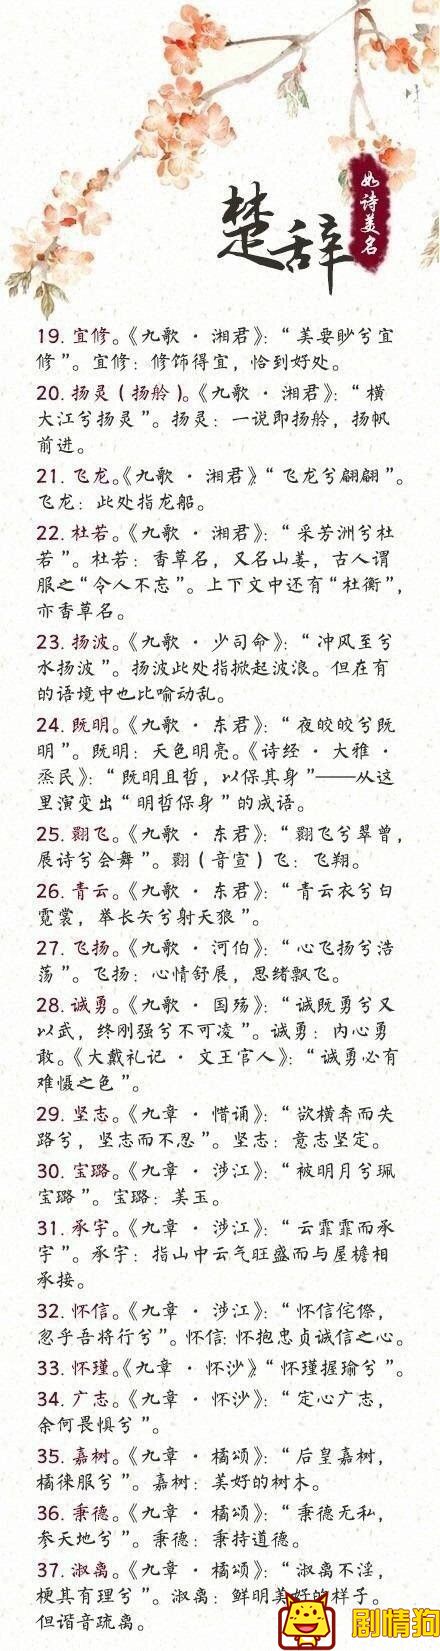 楚辞
如诗美名
19. 宜修。《九歌·湘君》：“美要眇兮宜
修”。宜修：修饰得宜，恰到好处。
20. 扬灵（扬舲）。《九歌·湘君》：“横
大江兮扬灵”。扬灵：一说即扬舲，扬帆
前进。
21. 飞龙。《九歌·湘君》“飞龙兮翩翩”。
飞龙：此处指龙船。
22. 杜若。《九歌·湘君》：“采芳洲兮杜
若”。杜若：香草名，又名山姜，古人谓
服之“令人不忘”。上下文中还有“杜衡”，
亦香草名。
23. 扬波。《九歌·少司命》：“冲风至兮
水扬波”。扬波此处指掀起波浪。但在有
的语境中也比喻动乱。
24. 既明。《九歌·东君》：“夜皎皎兮既
明”。既明：天色明亮。《诗经·大雅·
烝民》：“既明且哲，以保其身”——从这
里演变出“明哲保身”的成语。
25. 翾飞。《九歌·东君》：“翾飞兮翠曾，
展诗兮会舞”。翾（音宣）飞：飞翔。
26. 青云。《九歌·东君》：“青云衣兮白
霓裳，举长矢兮射天狼”。
27. 飞扬。《九歌·河伯》：“心飞扬兮浩
荡”。飞扬：心情舒展，思绪飘飞。
28. 诚勇。《九歌·国殇》：“诚既勇兮又
以武，终刚强兮不可凌”。诚勇：内心勇
敢。《大戴礼记·文王官人》：“诚勇必有
难慑之色”。
29. 坚志。《九章·惜诵》：“欲横奔而失
路兮，坚志而不忍”。坚志：意志坚定。
30. 宝璐。《九章·涉江》：“被明月兮珮
宝璐”。宝璐：美玉。
31. 承宇。《九章·涉江》：“云霏霏而承
宇”。承宇：指山中云气旺盛而与屋檐相
承接。
32. 怀信。《九章·涉江》：“怀信侘傺，
忽乎吾将行兮”。怀信：怀抱忠贞诚信之心。
33. 怀瑾。《九章·怀沙》“怀瑾握瑜兮”。
34. 广志。《九章·怀沙》：“定心广志，
余何畏惧兮”。
35. 嘉树。《九章·橘颂》：“后皇嘉树，
橘徕服兮”。嘉树：美好的树木。
36. 秉德。《九章·橘颂》：“秉德无私，
参天地兮”。秉德：秉持道德。
37. 淑离。《九章·橘颂》：“淑离不淫，
梗其有理兮”。淑离：鲜明美好的样子。
但谐音琉离。
剧情狗